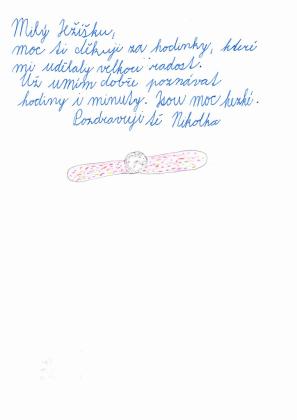 Milý Ježíšku,
moc ti děkuji za hodinky, které
mi udělaly velkou radost.
Už umím dobře poznávat
hodiny i minuty. Jsou moc hezké.
Pozdravuji tě Nikolka